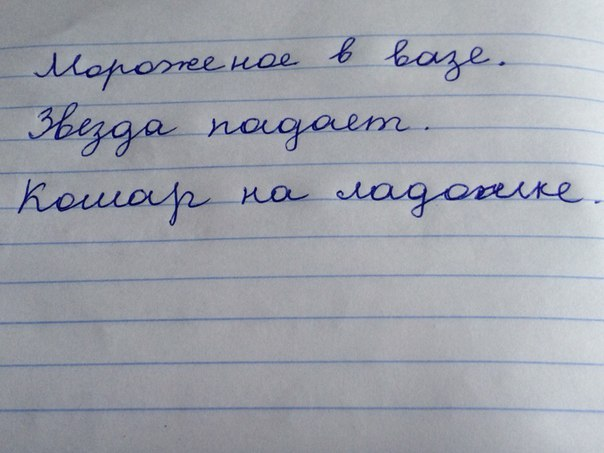 Мороженое в вазе.
Звезда падает.
Комар на ладошке.